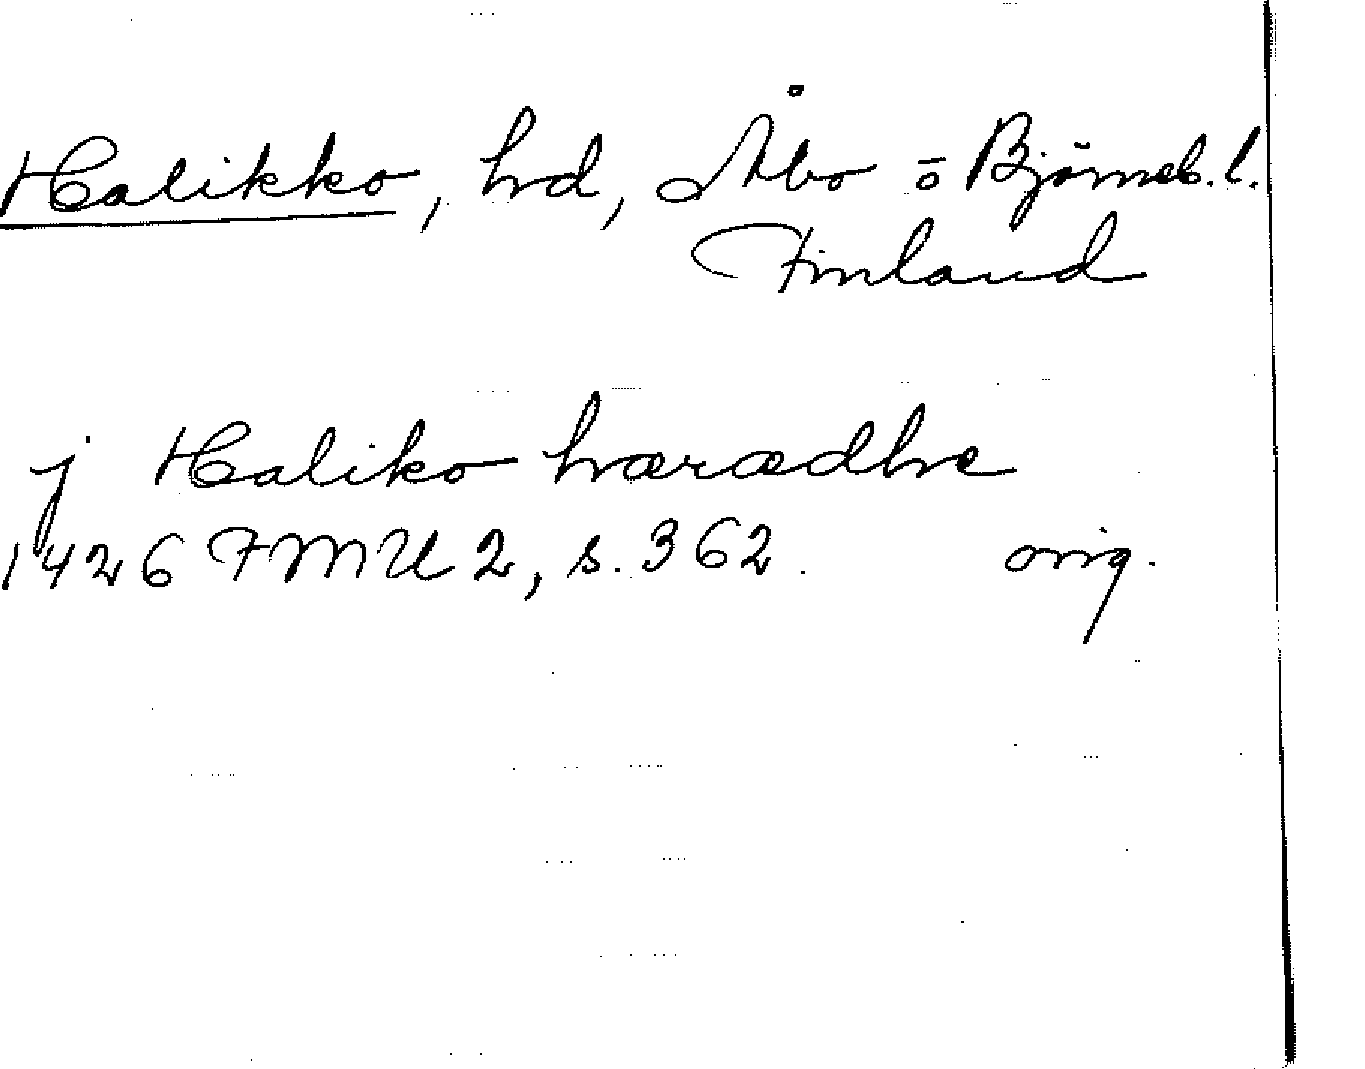 Halikko, hd, Åbo o Björneb. l.
Finland
j Haliko hærædhe
1426 FMU 2, s. 362. orig.